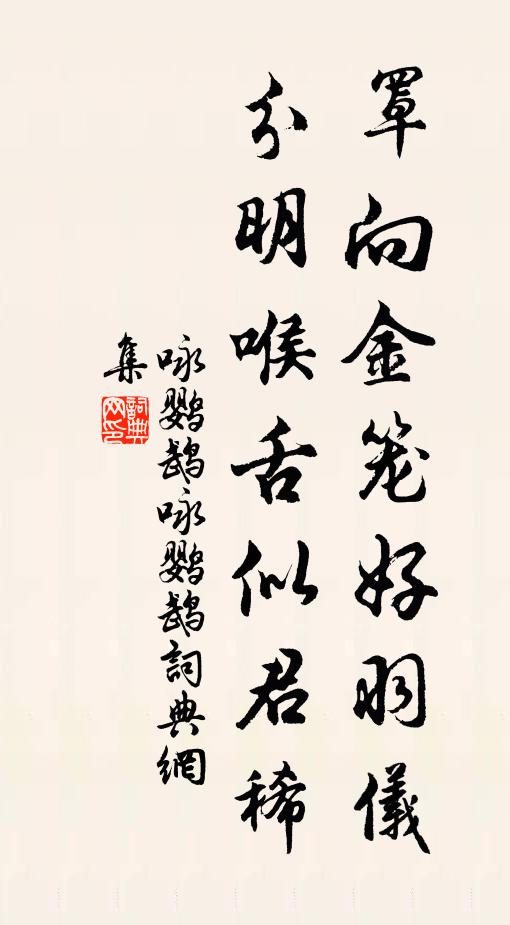 罩向金笼好羽儀
分明喉舌似君稀
咏鹦鹉咏鹦鹉詞典網
集
詞典
网印